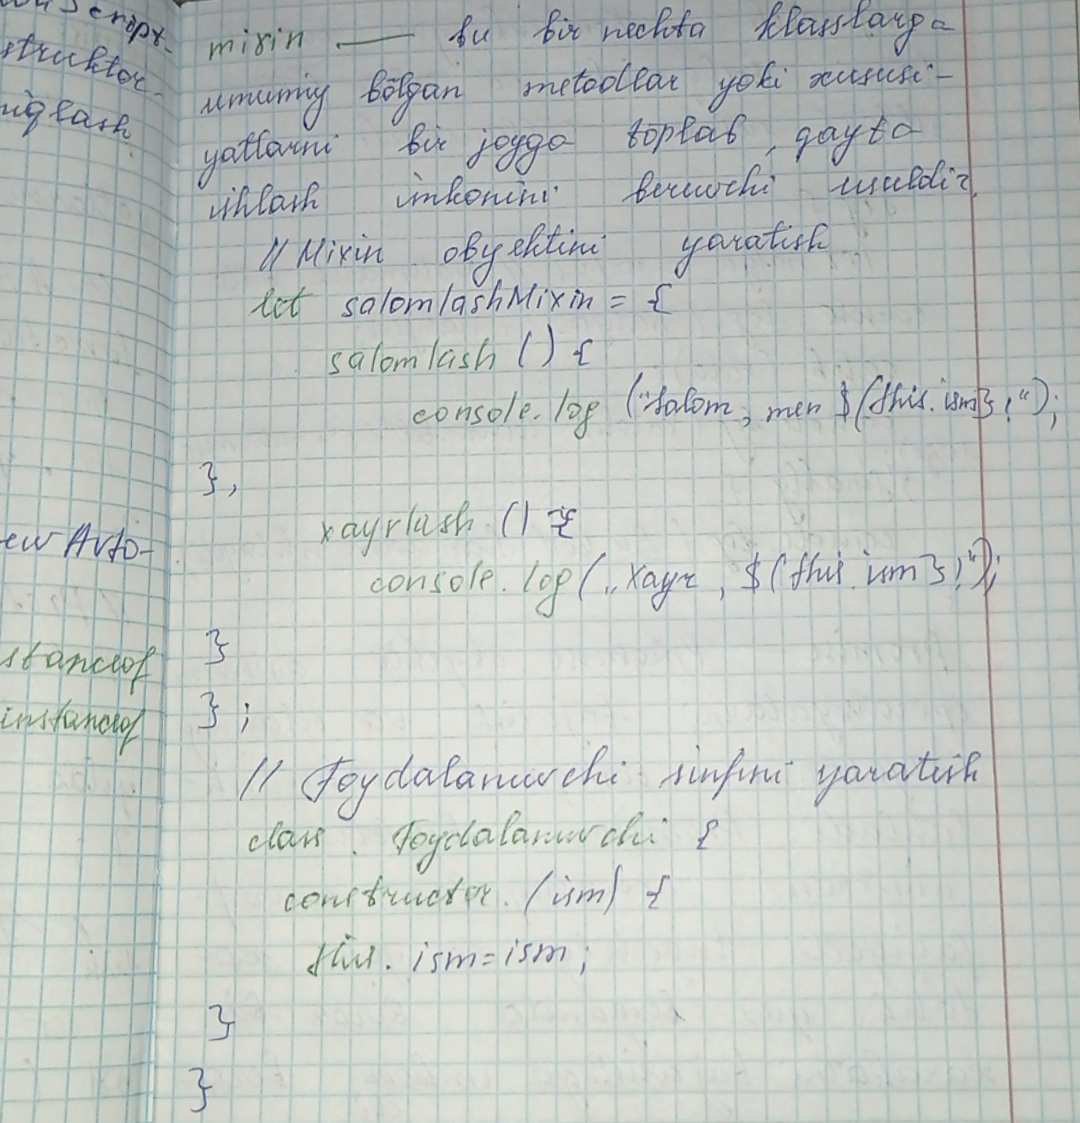 struktor-
iqlash
ew Avto-
stanceof
instanceof
mixin — bu bir nechta klasslarga
umumiy bo'lgan metodlar yoki xususi-
yatlarni bir joyga toplab, qayta
ishlash imkonini beruvchi usuldir.
// Mixin obyektini yaratish
let salomlashMixin = {
salomlash () {
console.log ("Salom, men $(this.ism}!");
},
xayrlash () {
console.log („Xayr, $(this.ism}!");
}
};
// Foydalanuvchi sinfini yaratish
class Foydalanuvchi {
constructor (ism) {
this.ism=ism;
}
}